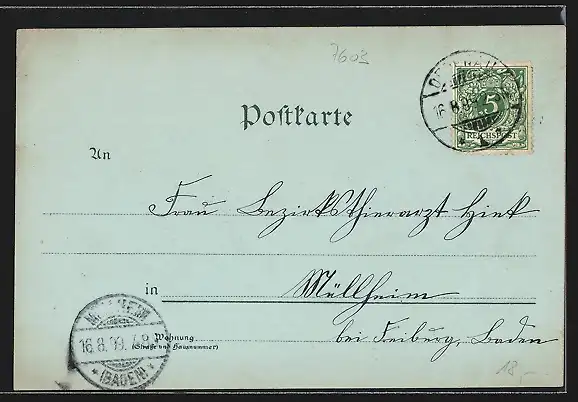 7603
5
REICHSPOST
16.8.99
Postkarte
An
Frau Bezirksthierarzt Hink
in
Müllheim
MÜLLHEIM
16.8.99.
*(BADEN)*
Wohnung
(Straße und Hausnummer)
bei Freiburg, Baden
18,-